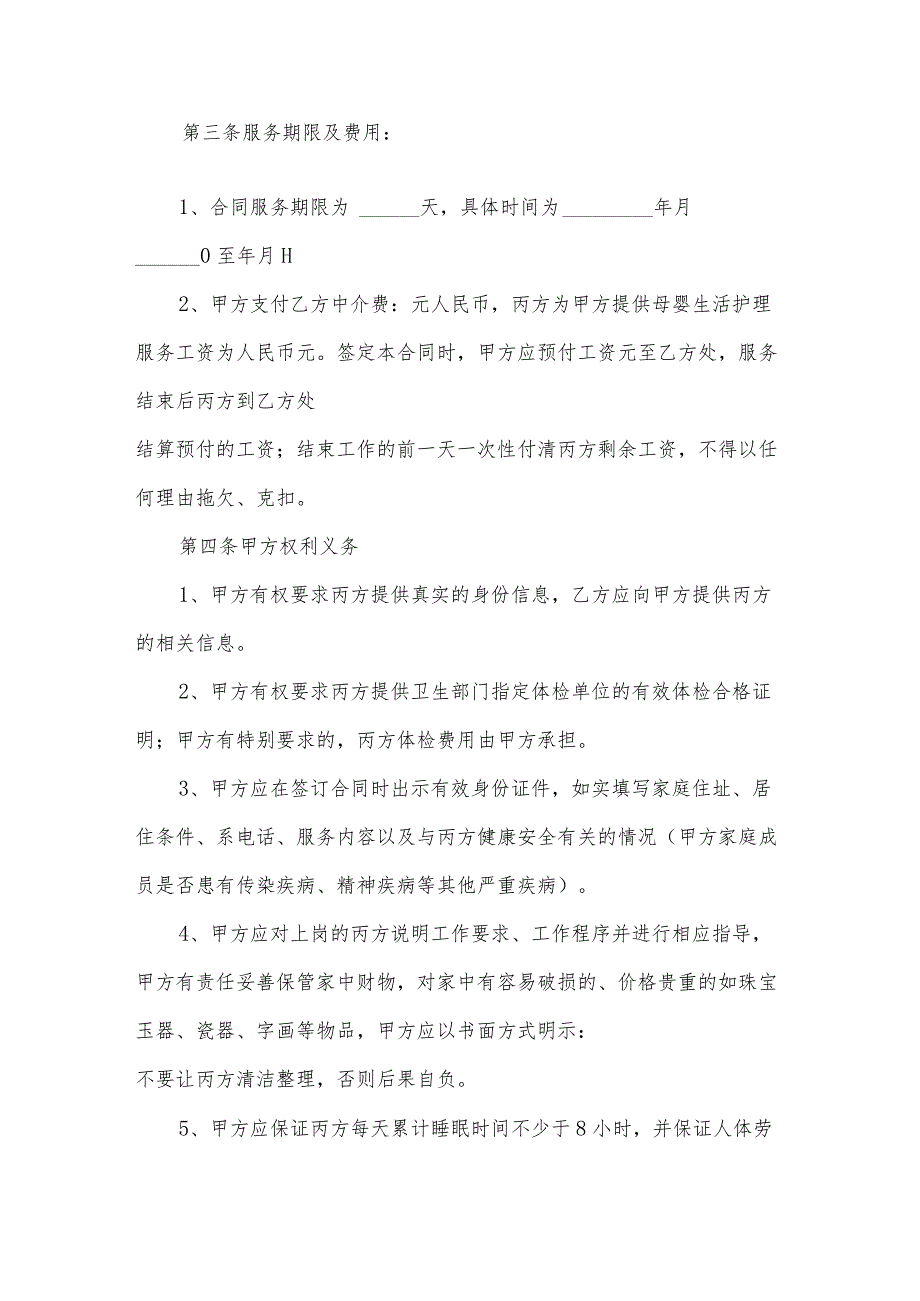 第三条服务期限及费用：
1、合同服务期限为 ______天，具体时间为_________年月
______0至年月H
2、甲方支付乙方中介费：元人民币，丙方为甲方提供母婴生活护理
服务工资为人民币元。签定本合同时，甲方应预付工资元至乙方处，服务
结束后丙方到乙方处
结算预付的工资；结束工作的前一天一次性付清丙方剩余工资，不得以任
何理由拖欠、克扣。
第四条甲方权利义务
1、甲方有权要求丙方提供真实的身份信息，乙方应向甲方提供丙方
的相关信息。
2、甲方有权要求丙方提供卫生部门指定体检单位的有效体检合格证
明；甲方有特别要求的，丙方体检费用由甲方承担。
3、甲方应在签订合同时出示有效身份证件，如实填写家庭住址、居
住条件、系电话、服务内容以及与丙方健康安全有关的情况（甲方家庭成
员是否患有传染疾病、精神疾病等其他严重疾病）。
4、甲方应对上岗的丙方说明工作要求、工作程序并进行相应指导，
甲方有责任妥善保管家中财物，对家中有容易破损的、价格贵重的如珠宝
玉器、瓷器、字画等物品，甲方应以书面方式明示：
不要让丙方清洁整理，否则后果自负。
5、甲方应保证丙方每天累计睡眠时间不少于8小时，并保证人体劳